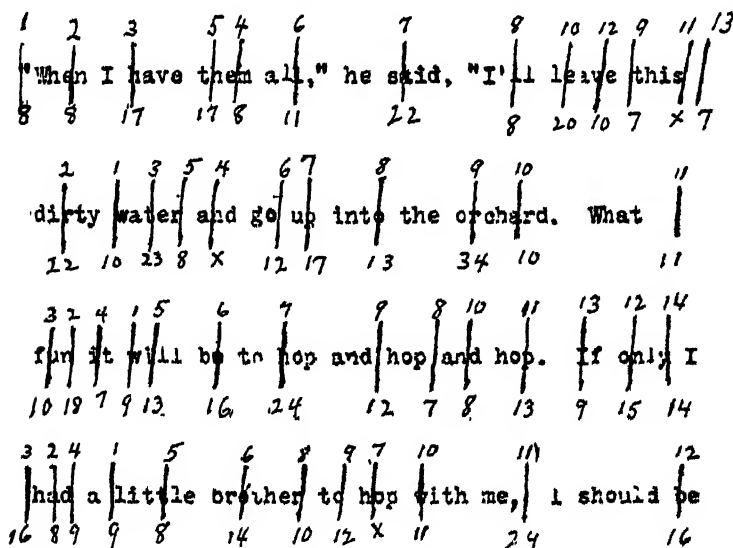 1 2 3 5 4 6 7 8 10 12 9 11 13
"When I have them all," he said, "I'll leave this
8 8 17 17 8 11 22 8 20 10 7 x 7
2 1 3 5 4 6 7 8 9 10 11
dirty water and go up into the orchard. What
22 10 23 8 x 12 17 13 34 10 11
3 2 4 1 5 6 7 9 8 10 11 13 12 14
fun it will be to hop and hop and hop. If only I
10 18 7 9 13 16 24 12 7 8 13 9 15 14
3 2 4 1 5 6 8 9 7 10 11 12
had a little brother to hop with me, I should be
16 8 9 9 8 14 10 12 x 11 24 16